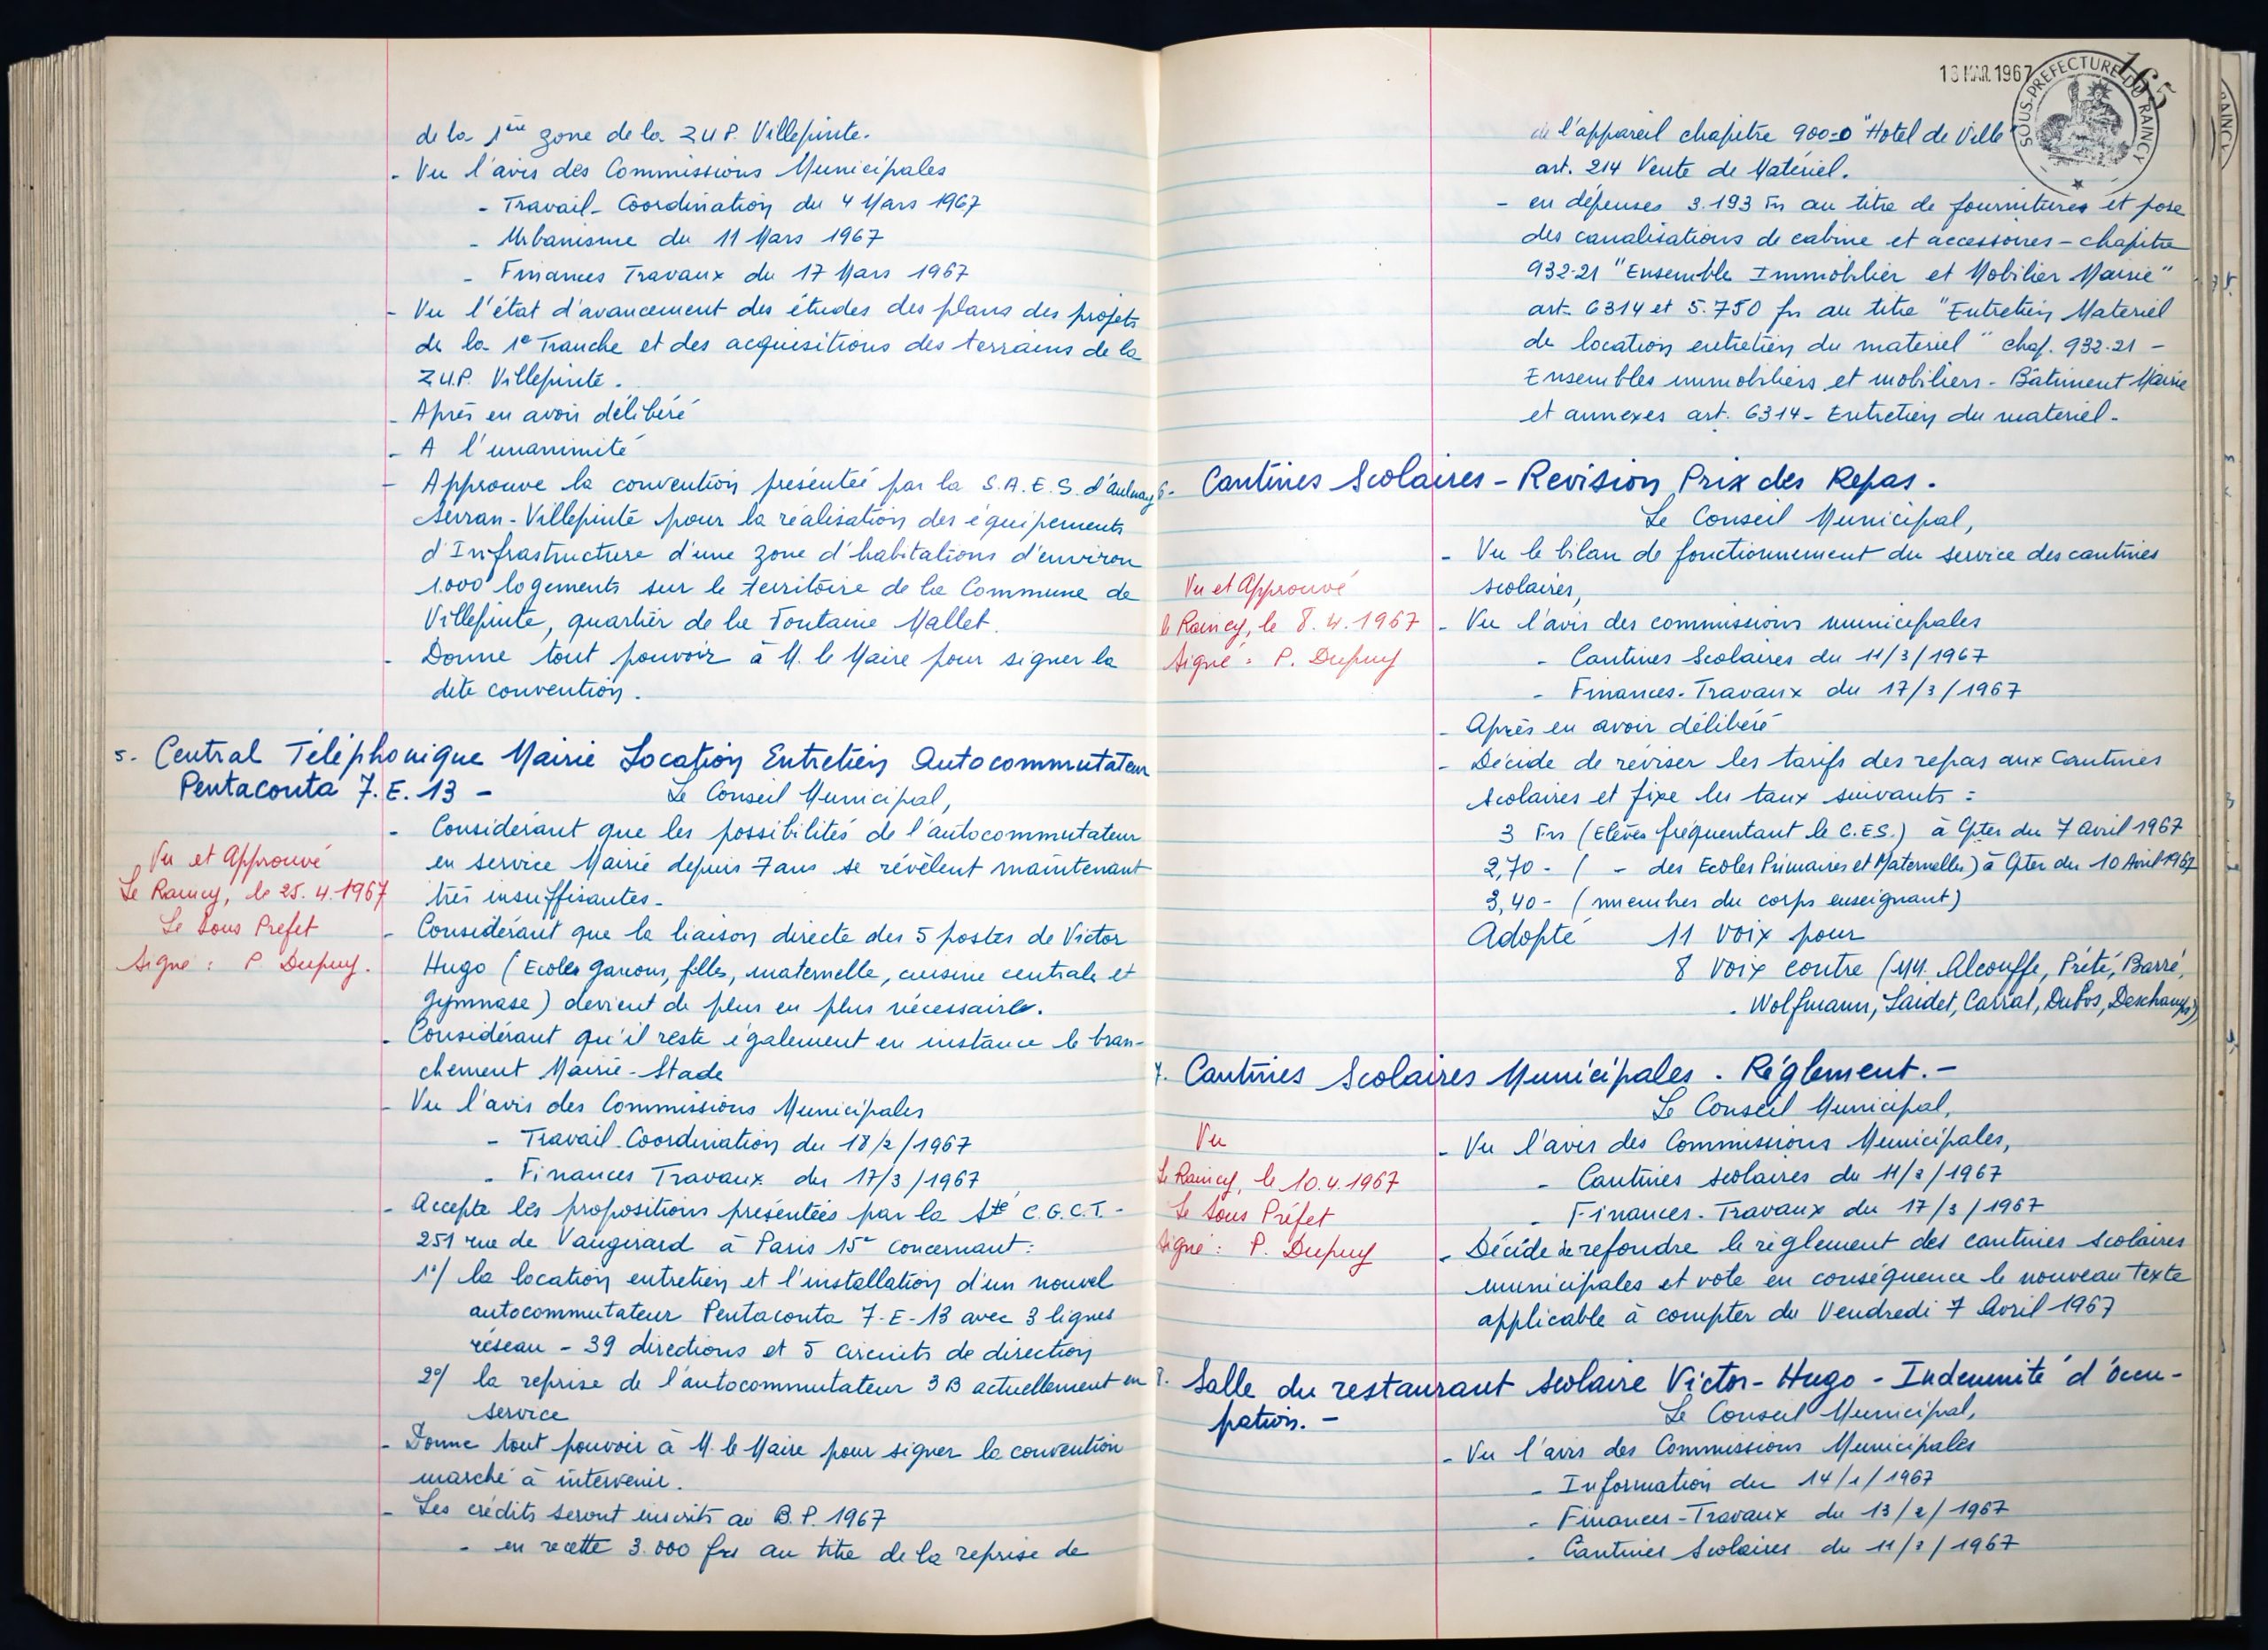 de la 1ère zone de la Z.U.P. Villepinte.
- Vu l'avis des Commissions Municipales
- Travail - Coordination du 4 Mars 1967
- Urbanisme du 11 Mars 1967
- Finances Travaux du 17 Mars 1967
- Vu l'état d'avancement des études des plans des projets
de la 1e Tranche et des acquisitions des terrains de la
Z.U.P. Villepinte.
- Après en avoir délibéré
- A l'unanimité
- Approuve la convention présentée par la S.A.E.S. d'Aulnay
Sevran-Villepinte pour la réalisation des équipements
d'Infrastructure d'une zone d'habitations d'environ
1.000 logements sur le territoire de la Commune de
Villepinte, quartier de la Fontaine Mallet.
- Donne tout pouvoir à M. le Maire pour signer la
dite convention.
5. Central Téléphonique Mairie Location Entretien Autocommutateur
Pentaconta 7.E.13 -
Le Conseil Municipal,
- Considérant que les possibilités de l'autocommutateur
en service Mairie depuis 7 ans se révèlent maintenant
très insuffisantes -
Vu et Approuvé
Le Raincy, le 25.4.1967
Le Sous Préfet
Signé : P. Dupuy.
- Considérant que la liaison directe des 5 postes de Victor
Hugo (Ecoles garçons, filles, maternelle, cuisine centrale et
gymnase) devient de plus en plus nécessaire.
- Considérant qu'il reste également en instance le bran-
chement Mairie-Stade
- Vu l'avis des Commissions Municipales
- Travail-Coordination du 18/2/1967
- Finances Travaux du 17/3/1967
- Accepte les propositions présentées par la Sté C.G.C.T. -
251 rue de Vaugirard à Paris 15e concernant :
1°/ la location entretien et l'installation d'un nouvel
autocommutateur Pentaconta 7-E-13 avec 3 lignes
réseau - 39 directions et 5 circuits de direction
2°/ la reprise de l'autocommutateur 3B actuellement en
service
- Donne tout pouvoir à M. le Maire pour signer la convention
marché à intervenir.
- Les crédits seront inscrits au B.P. 1967
- en recette 3.000 frs au titre de la reprise de
MAR. 1967
SOUS-PREFECTURE DU RAINCY
165
de l'appareil chapitre 900-0 "Hotel de Ville"
art. 214 Vente de Matériel.
- en dépenses 3.193 Frs au titre de fournitures et pose
des canalisations de cabine et accessoires - chapitre
932-21 "Ensemble Immobilier et Mobilier Mairie"
art. 6314 et 5.750 frs au titre "Entretien Materiel
de location entretien du materiel" chap. 932.21 -
Ensembles immobiliers et mobiliers - Bâtiment Mairie
et annexes art. 6314 - Entretien du materiel -
6. Cantines Scolaires - Revision Prix des Repas.
Le Conseil Municipal,
- Vu le bilan de fonctionnement du service des cantines
scolaires,
Vu et Approuvé
le Raincy, le 8.4.1967
Signé : P. Dupuy
- Vu l'avis des commissions municipales
- Cantines Scolaires du 11/3/1967
- Finances-Travaux du 17/3/1967
- Après en avoir délibéré
- Décide de réviser les tarifs des repas aux Cantines
scolaires et fixe les taux suivants :
3 Frs (Elèves fréquentant le C.E.S.) à Cpter du 7 Avril 1967
2,70 - ( - des Ecoles Primaires et Maternelles) à Cpter du 10 Avril 1967
3,40 - (membres du corps enseignant)
Adopté 11 voix pour
8 voix contre (MM. Alcouffe, Prêté, Barré,
Wolfmann, Laidet, Carrat, Dubos, Deschamps)
7. Cantines Scolaires Municipales - Réglement. -
Le Conseil Municipal,
Vu
Le Raincy, le 10.4.1967
Le Sous Préfet
Signé : P. Dupuy
- Vu l'avis des Commissions Municipales,
- Cantines scolaires du 11/3/1967
- Finances-Travaux du 17/3/1967
- Décide de refondre le règlement des cantines scolaires
municipales et vote en conséquence le nouveau texte
applicable à compter du Vendredi 7 Avril 1967
8. Salle du restaurant scolaire Victor-Hugo - Indemnité d'occu-
pation. -
Le Conseil Municipal,
- Vu l'avis des Commissions Municipales
- Information du 14/1/1967
- Finances-Travaux du 13/2/1967
- Cantines Scolaires du 11/3/1967